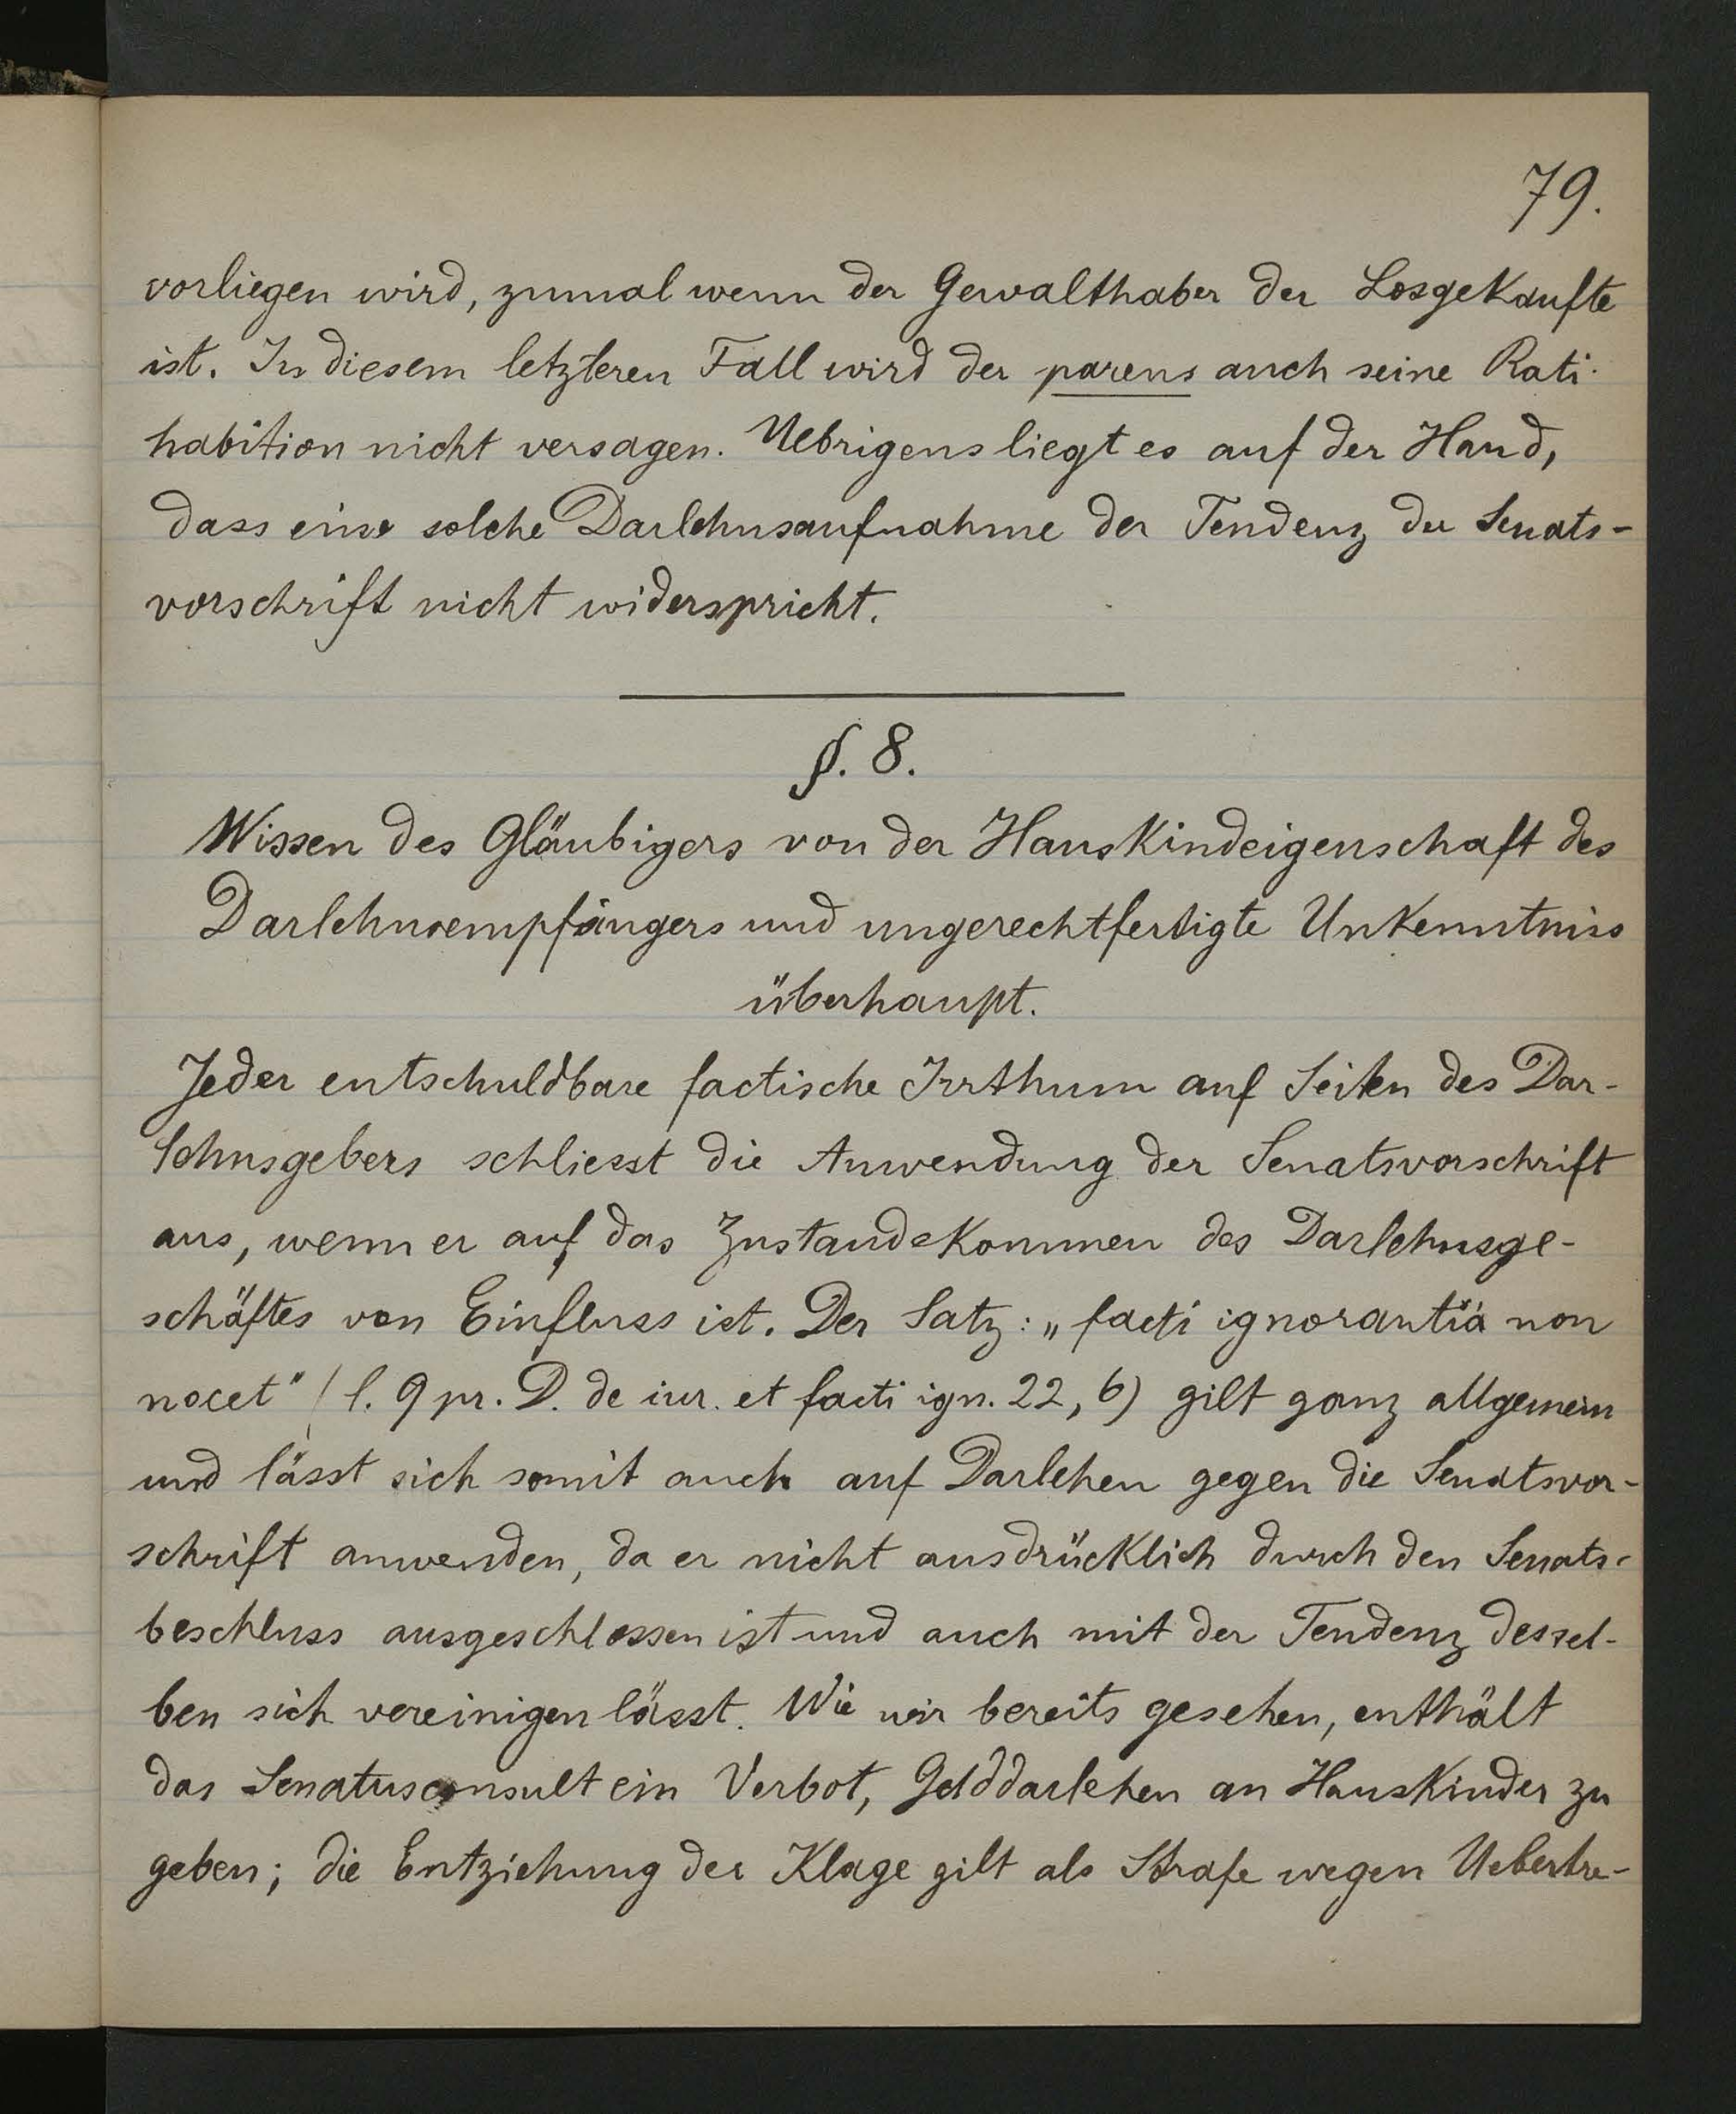 79.
vorliegen wird, zumal wenn der Gewalthaber der Losgekaufte
ist. In diesem letzteren Fall wird der parens auch seine Rati-
habition nicht versagen. Uebrigens liegt es auf der Hand,
dass eine solche Darlehnsaufnahme der Tendenz der Senats-
vorschrift nicht widerspricht.
§. 8.
Wissen des Gläubigers von der Hauskindeigenschaft des
Darlehnsempfängers und ungerechtfertigte Unkenntniss
überhaupt.
Jeder entschuldbare factische Irrthum auf Seiten des Dar-
lehnsgebers schliesst die Anwendung der Senatsvorschrift
aus, wenn er auf das Zustandekommen des Darlehnsge-
schäftes von Einfluss ist. Der Satz: „facti ignorantia non
nocet" (l. 9 pr. D. de iur. et facti ign. 22, 6) gilt ganz allgemein
und lässt sich somit auch auf Darlehen gegen die Senatsvor-
schrift anwenden, da er nicht ausdrücklich durch den Senats-
beschluss ausgeschlossen ist und auch mit der Tendenz dessel-
ben sich vereinigen lässt. Wie wir bereits gesehen, enthält
das Senatusconsult ein Verbot, Gelddarlehen an Hauskinder zu
geben; die Entziehung der Klage gilt als Strafe wegen Uebertre-